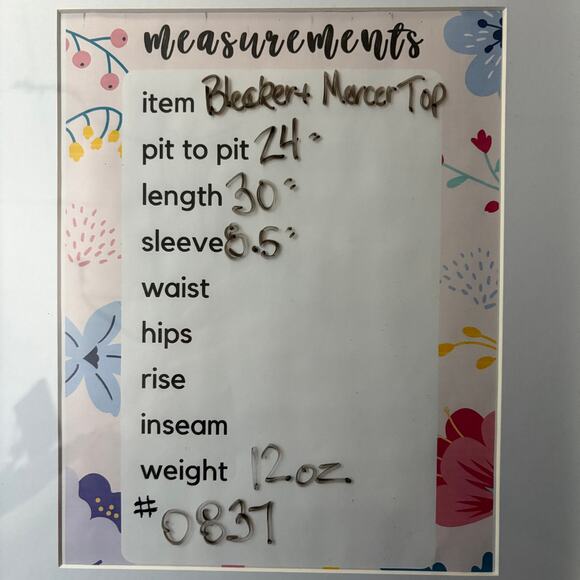 measurements
item Bleecker + Mercer Top
pit to pit 24"
length 30"
sleeve 8.5"
waist
hips
rise
inseam
weight 12oz.
# 0837